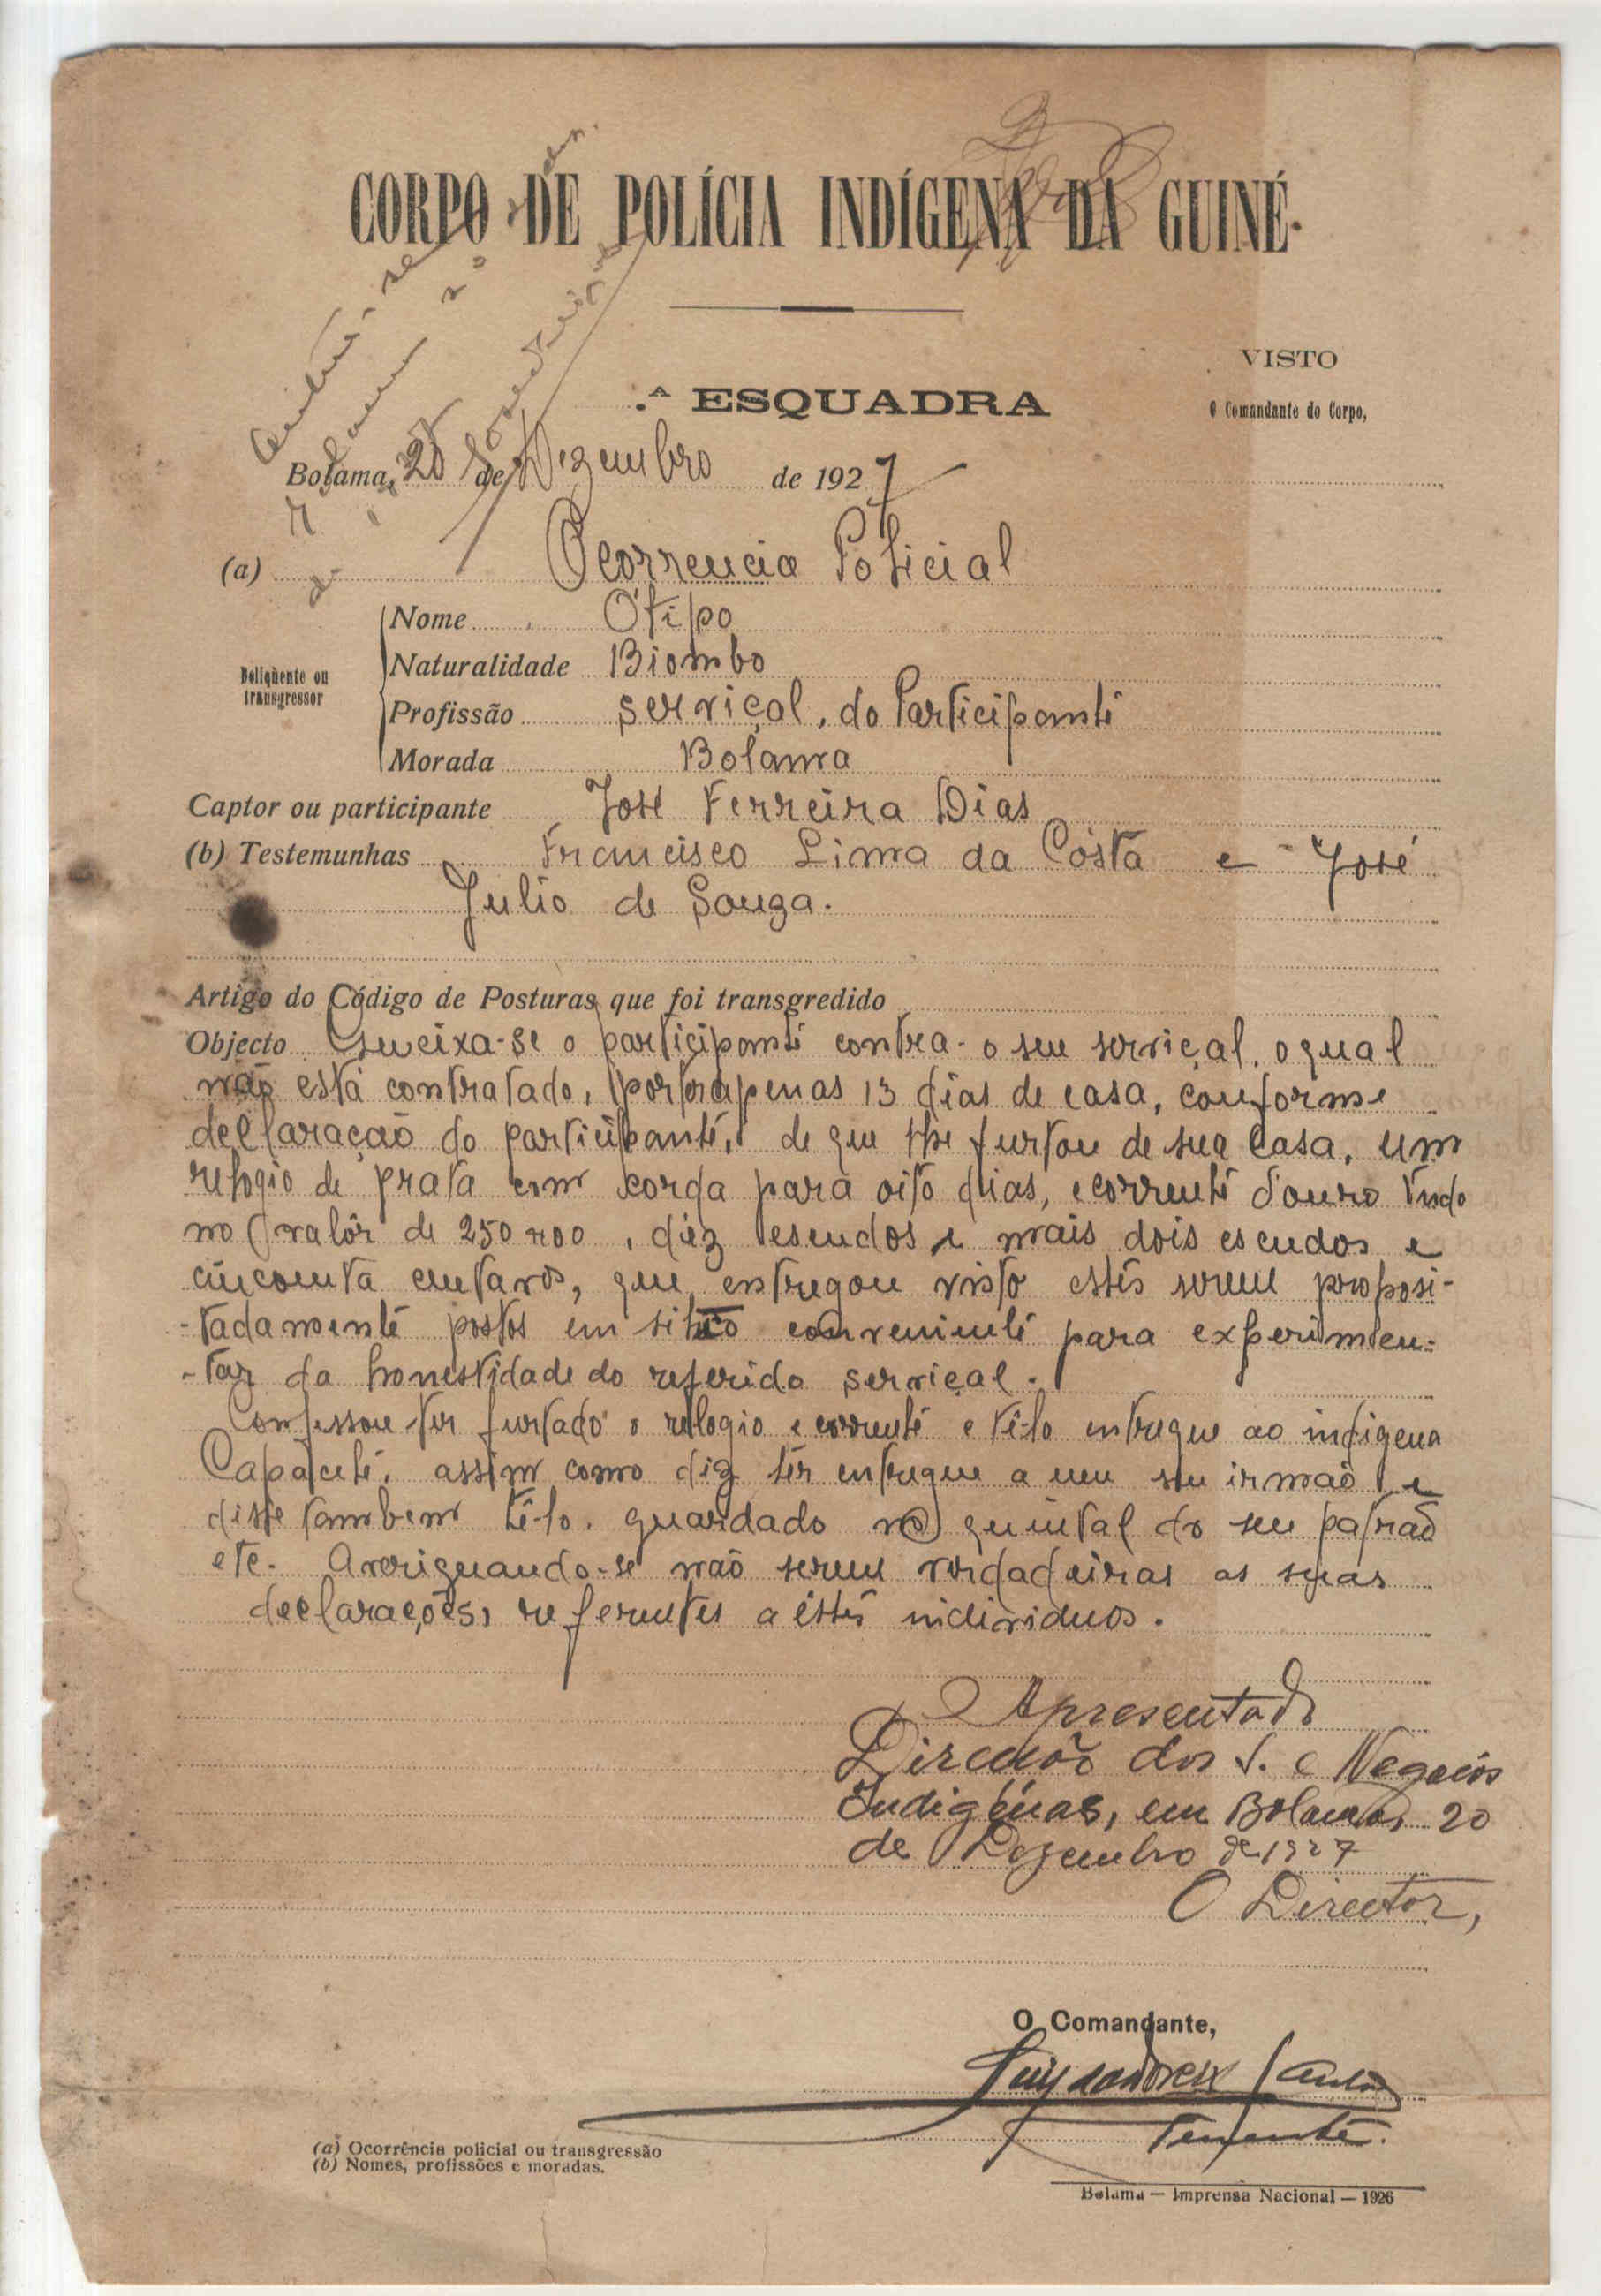 CORPO DE POLÍCIA INDÍGENA DA GUINÉ
VISTO
.ª ESQUADRA
O Comandante do Corpo,
Bolama, 20 de Dezembro de 1927
(a) Ocorrencia Policial
Deliqüente ou transgressor
Nome Ótipo
Naturalidade Biombo
Profissão serviçal, do Participante
Morada Bolama
Captor ou participante José Ferreira Dias
(b) Testemunhas Francisco Lima da Cósta e José
Julio de Souza.
Artigo do Código de Posturas que foi transgredido
Objecto Queixa-se o participante contra o seu serviçal, o qual
não está contratado, por ter apenas 13 dias de casa, conforme
declaração do participante, de que lhe furtou de sua casa, um
relogio de prata com corda para oito dias, e corrente d'ouro tudo
no valôr de 250$00, déz escudos e mais dois escudos e
cincoenta centavos, que entregou visto estes serem proposi-
-tadamente postos em sitio conveniente para experimen-
-tar da honestidade do referido serviçal.
Confessou ter furtado o relogio e corrente e tê-lo entregue ao indigena
Capacete, assim como diz têr entregue a um seu irmão e
disse tambem tê-lo guardado no quintal do seu patrão
etc. Averiguando-se não serem verdadeiras as suas
declarações, referentes a êstes individuos.
Apresentado
Direcção dos S. e Negocios
Indigénas, em Bolama, 20
de Dezembro de 1927
O Director,
O Comandante,
Tenente.
(a) Ocorrência policial ou transgressão
(b) Nomes, profissões e moradas.
Bolama — Imprensa Nacional — 1926